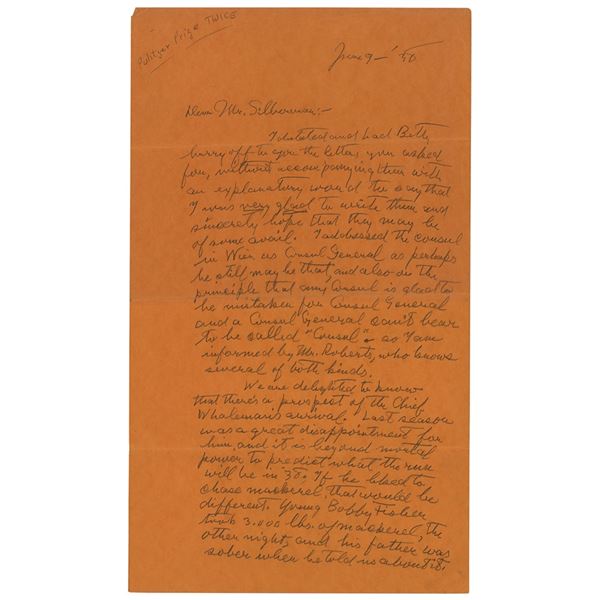 Pulitzer Prize TWICE
June 9 - '38
Dear Mr. Silberman:-
I dictated and had Betty
hurry off to you the letters you asked
for, without accompanying them with
an explanatory word to say that
I was very glad to write them and
sincerely hope that they may be
of some avail. I addressed the consul
in Wien as Consul General as perhaps
he still may be that, and also on the
principle that any Consul is glad to
be mistaken for Consul General
and a Consul General can't bear
to be called "Consul" - so I am
informed by Mr. Roberts, who knows
several of both kinds.
We are delighted to know
that there's a prospect of the Chief
Whaleman's arrival. Last season
was a great disappointment for
him, and it is beyond mortal
power to predict what the run
will be in 38. If he liked to
chase mackerel, that would be
different. Young Bobby Fisher
took 3.000 lbs. of mackerel, the
other night, and his father was
sober when he told us about it.